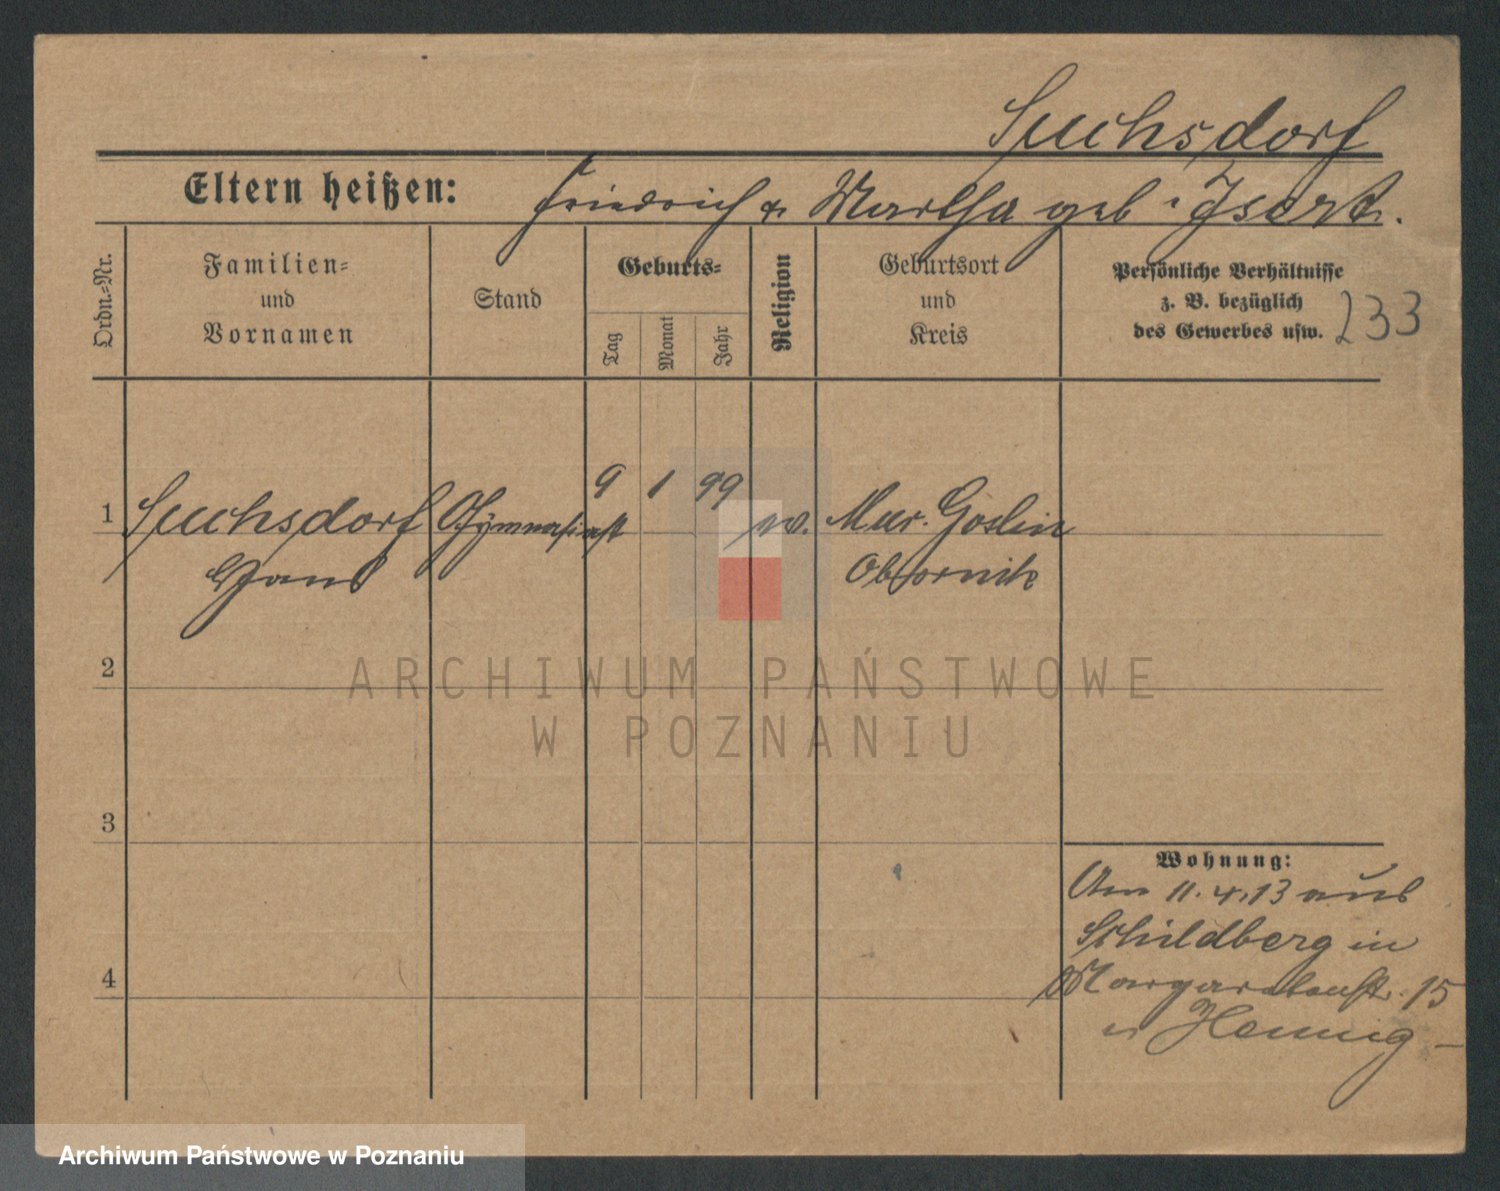 Suchsdorf
Eltern heißen: Friedrich & Martha geb. Isert.
Ordn.-Nr.
Familien-
und
Vornamen
Stand
Geburts-
Tag
Monat
Jahr
Religion
Geburtsort
und
Kreis
Persönliche Verhältnisse
z. B. bezüglich
des Gewerbes usw.
233
1 Suchsdorf Gymnasiast 9 1 99 ev. Mur. Goslin
Hans Obornik
2
ARCHIWUM PAŃSTWOWE
W POZNANIU
3
Wohnung:
Am 11.4.13 aus
Schildberg in
4 Margaretenstr. 15
Hennig
Archiwum Państwowe w Poznaniu